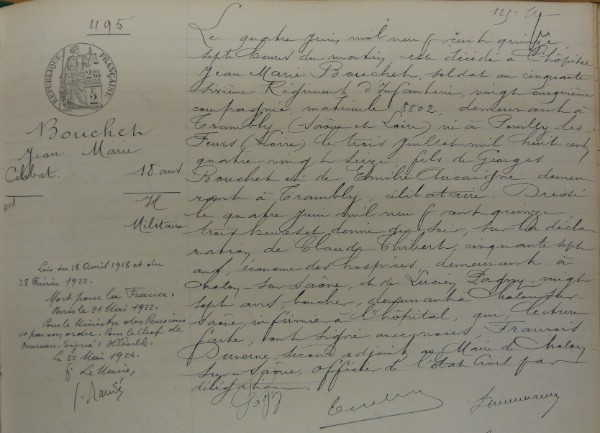 495
RÉPUBLIQUE FRANÇAISE
Bouchet
Jean Marie
Célibat.
18 ans
H
Militaire
Lois du 18 Avril 1918 et du
28 Février 1922.
Mort pour la France.
Paris le 21 Mai 1922.
Pour le Ministre des Pensions
et par son ordre. Pour le Chef de
Bureau. Signé:
Le 22 Mai 1924.
Le Maire,
Le quatre Juin mil neuf cent quinze
sept heures du matin, est décédé à l'hôpital
Jean Marie Bouchet, soldat au cinquante
sixième Régiment d'Infanterie, vingt cinquième
compagnie, matricule 8802, demeurant à
Trambly (Saône et Loire) né à Pouilly-les-
Feurs (Loire) le trois Juillet mil huit cent
quatre vingt seize, fils de Georges
Bouchet et de Emilie Aucaigne demeu
rant à Trambly, célibataire. Dressé
le quatre Juin mil neuf cent quinze
trois heures et demie du soir, sur la décla
ration de Claude Thibert, cinquante sept
ans, économe des hospices demeurant à
Chalon-sur-Saône, et de Lucien Pagny, vingt
sept ans, boucher, demeurant à Chalon-sur-
Saône, infirmier à l'hôpital, qui, lecture
faite, ont signé avec nous, François
second adjoint au Maire de Chalon-
sur-Saône, officier de l'État Civil par
délégation.